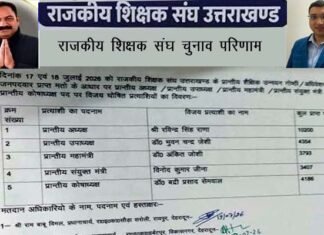 राजकीय शिक्षक संघ उत्तराखण्ड
राजकीय शिक्षक संघ चुनाव परिणाम
दिनांक 17 एवं 18 जुलाई 2026 को राजकीय शिक्षक संघ उत्तराखण्ड के प्रान्तीय शैक्षिक उन्नयन गोष्ठी
जनपदवार प्राप्त मतों के आधार पर प्रान्तीय अध्यक्ष / प्रान्तीय उपाध्यक्ष / प्रान्तीय महामंत्री / प्रान्तीय संयुक्त मंत्री
प्रान्तीय कोषाध्यक्ष पद पर विजय घोषित प्रत्याशियों का विवरण:-
क्रम संख्या प्रत्याशी का पदनाम विजय प्रत्याशी का नाम कुल प्राप्त
1 प्रान्तीय अध्यक्ष श्री रविन्द्र सिंह राणा 10200
2 प्रान्तीय उपाध्यक्ष डॉ० भुवन चन्द्र जेशी 4354
3 प्रान्तीय महामंत्री डॉ० अंकित जोशी 3793
4 प्रान्तीय संयुक्त मंत्री विनोद कुमार जीना 3407
5 प्रान्तीय कोषाध्यक्ष डॉ० बद्री प्रसाद सेमवाल 4186
मतदान अधिकारियों के नाम, पदनाम एवं हस्ताक्षर:-
1- श्री राम बाबू विमल, प्रधानाचार्य, देहरादून
विकासनगर, देहरादून